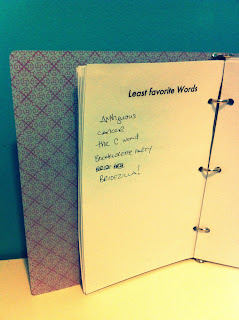 Least favorite Words
Ambiguous
cancer
the C word
Bachelorette Party
Bridezilla!